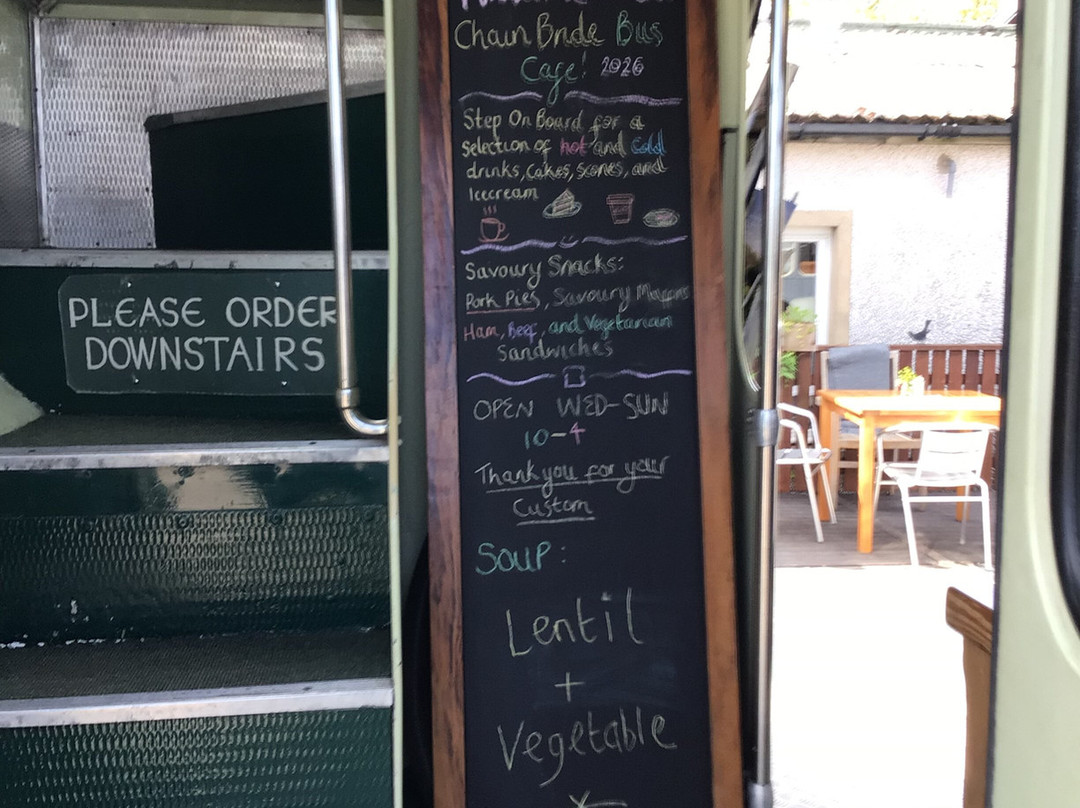 PLEASE ORDER
DOWNSTAIRS
Chain Bride Bus
Cafe! 2026
Step On Board for a
Selection of hot and Cold
drinks, Cakes, Scones, and
Icecream
Savoury Snacks:
Pork Pies, Savoury Muffins
Ham, Beef, and Vegetarian
Sandwiches
OPEN WED-SUN
10-4
Thankyou for your
Custom
SOUP:
Lentil
+
Vegetable